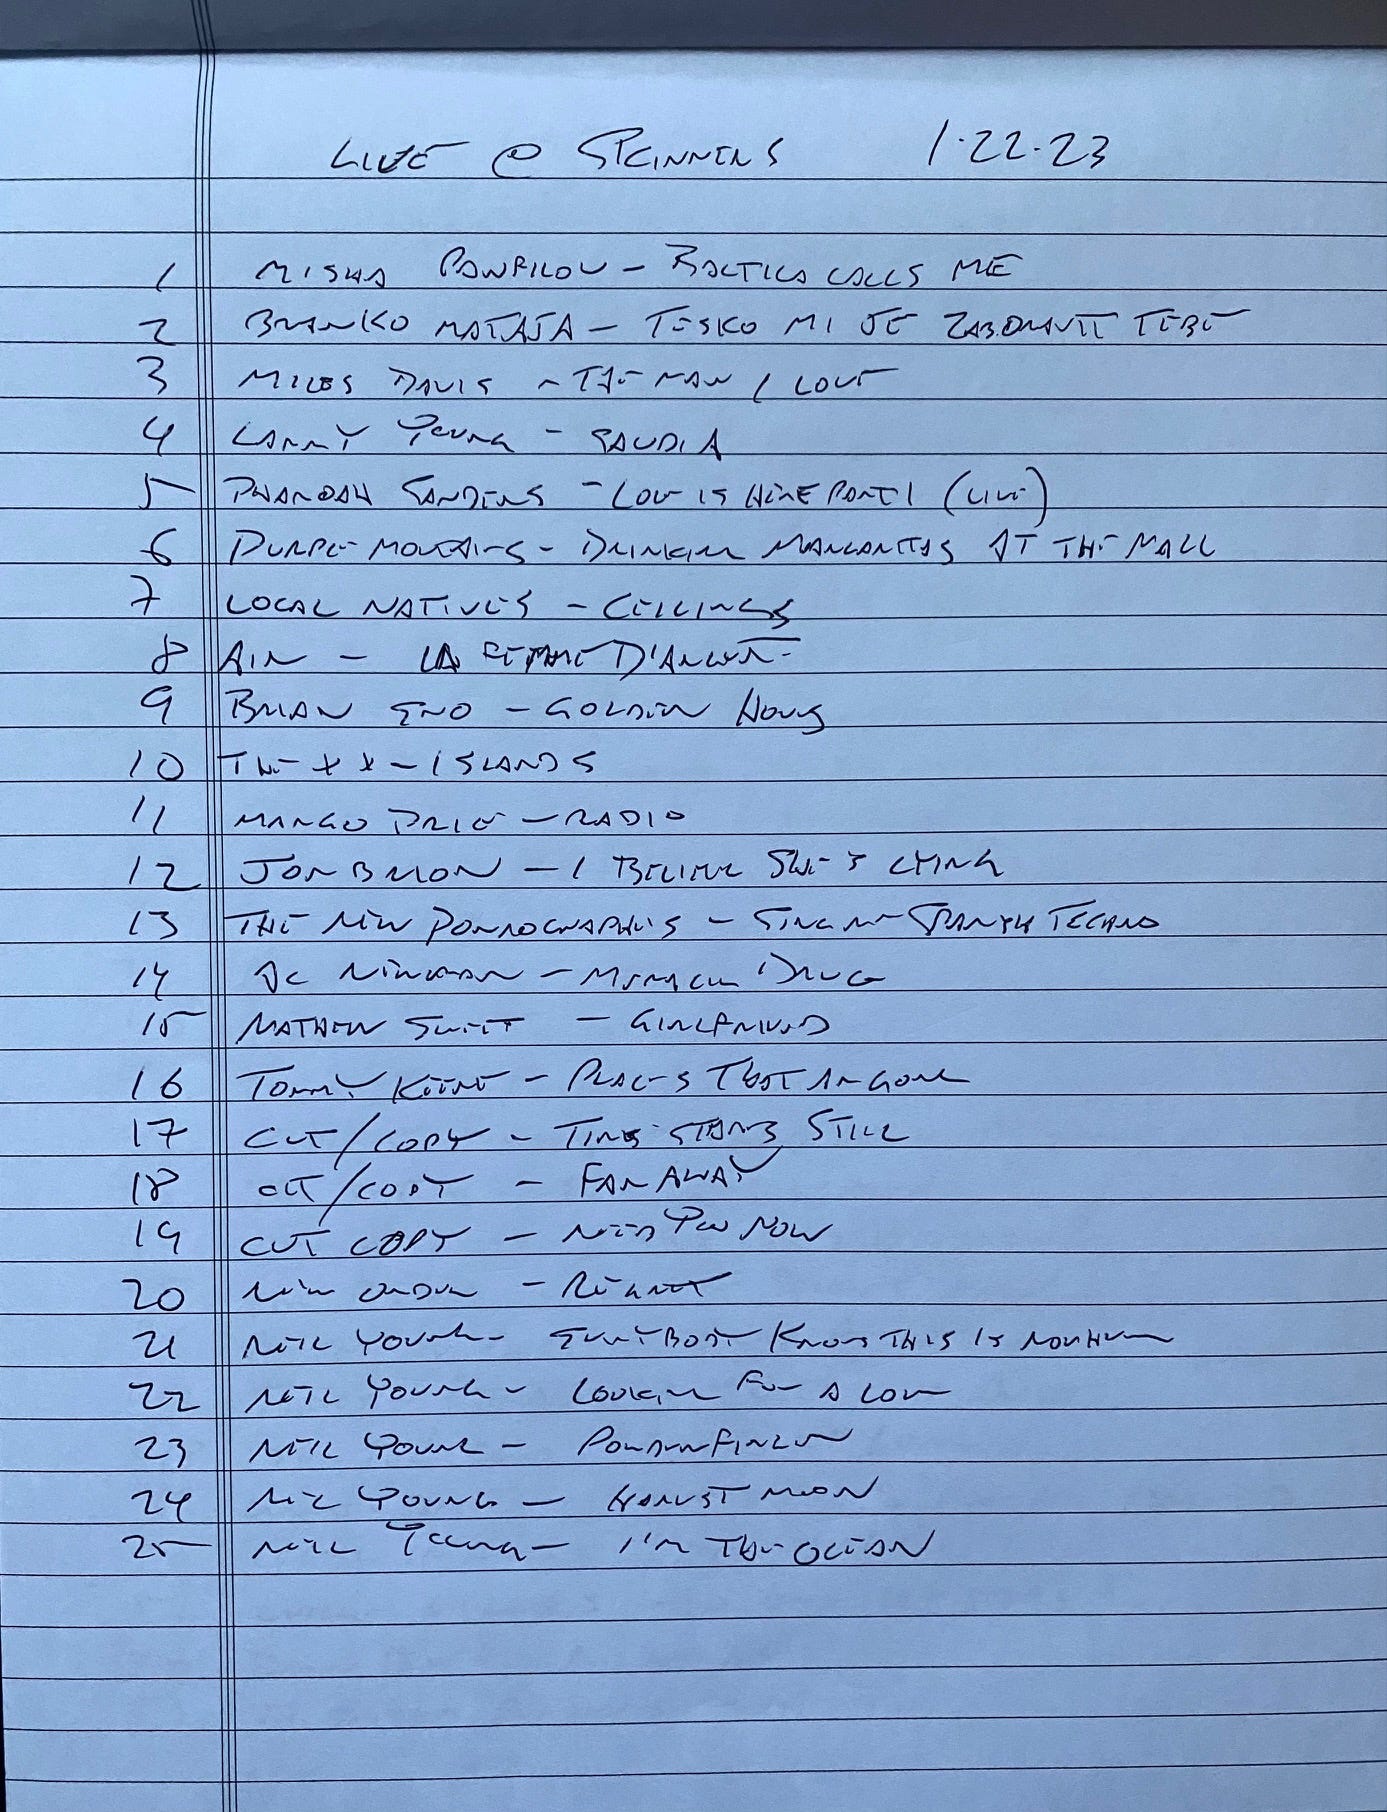 LIVE @ SPINNERS 1·22·23
1 MISHA PANFILOV – BALTICA CALLS ME
2 BRANKO MATAJA – TESKO MI JE ZABORAVITI TEBE
3 MILES DAVIS – THE MAN I LOVE
4 LARRY YOUNG – SAUDIA
5 PHAROAH SANDERS – LOVE IS HERE PART 1 (LIVE)
6 PURPLE MOUNTAINS – DRINKING MARGARITAS AT THE MALL
7 LOCAL NATIVES – CEILINGS
8 AIR – LA FEMME D'ARGENT
9 BRIAN ENO – GOLDEN HOURS
10 THE XX – ISLANDS
11 MARGO PRICE – RADIO
12 JON BRION – I BELIEVE SHE'S LYING
13 THE NEW PORNOGRAPHERS – SING ME SPANISH TECHNO
14 AC NEWMAN – MIRACLE DRUG
15 MATHEW SWEET – GIRLFRIEND
16 TOMMY KEENE – PLACES THAT ARE GONE
17 CUT/COPY – TIME STANDS STILL
18 CUT/COPY – FAR AWAY
19 CUT COPY – NEED YOU NOW
20 NEW ORDER – REGRET
21 NEIL YOUNG – EVERYBODY KNOWS THIS IS NOWHERE
22 NEIL YOUNG – LOOKING FOR A LOVE
23 NEIL YOUNG – POWDERFINGER
24 NEIL YOUNG – HARVEST MOON
25 NEIL YOUNG – I'M THE OCEAN